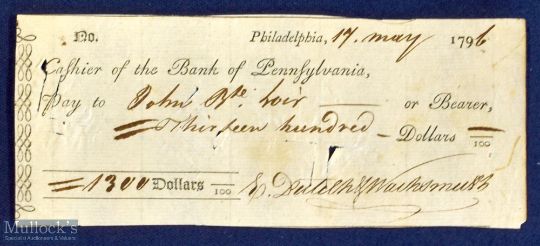 No. Philadelphia, 17. may 1796
Cashier of the Bank of Pennsylvania,
Pay to John Bte. — or Bearer,
= Thirteen hundred — Dollars — /100
= 1300 Dollars /100
Mullock's
Specialist Auctioneers & Valuers